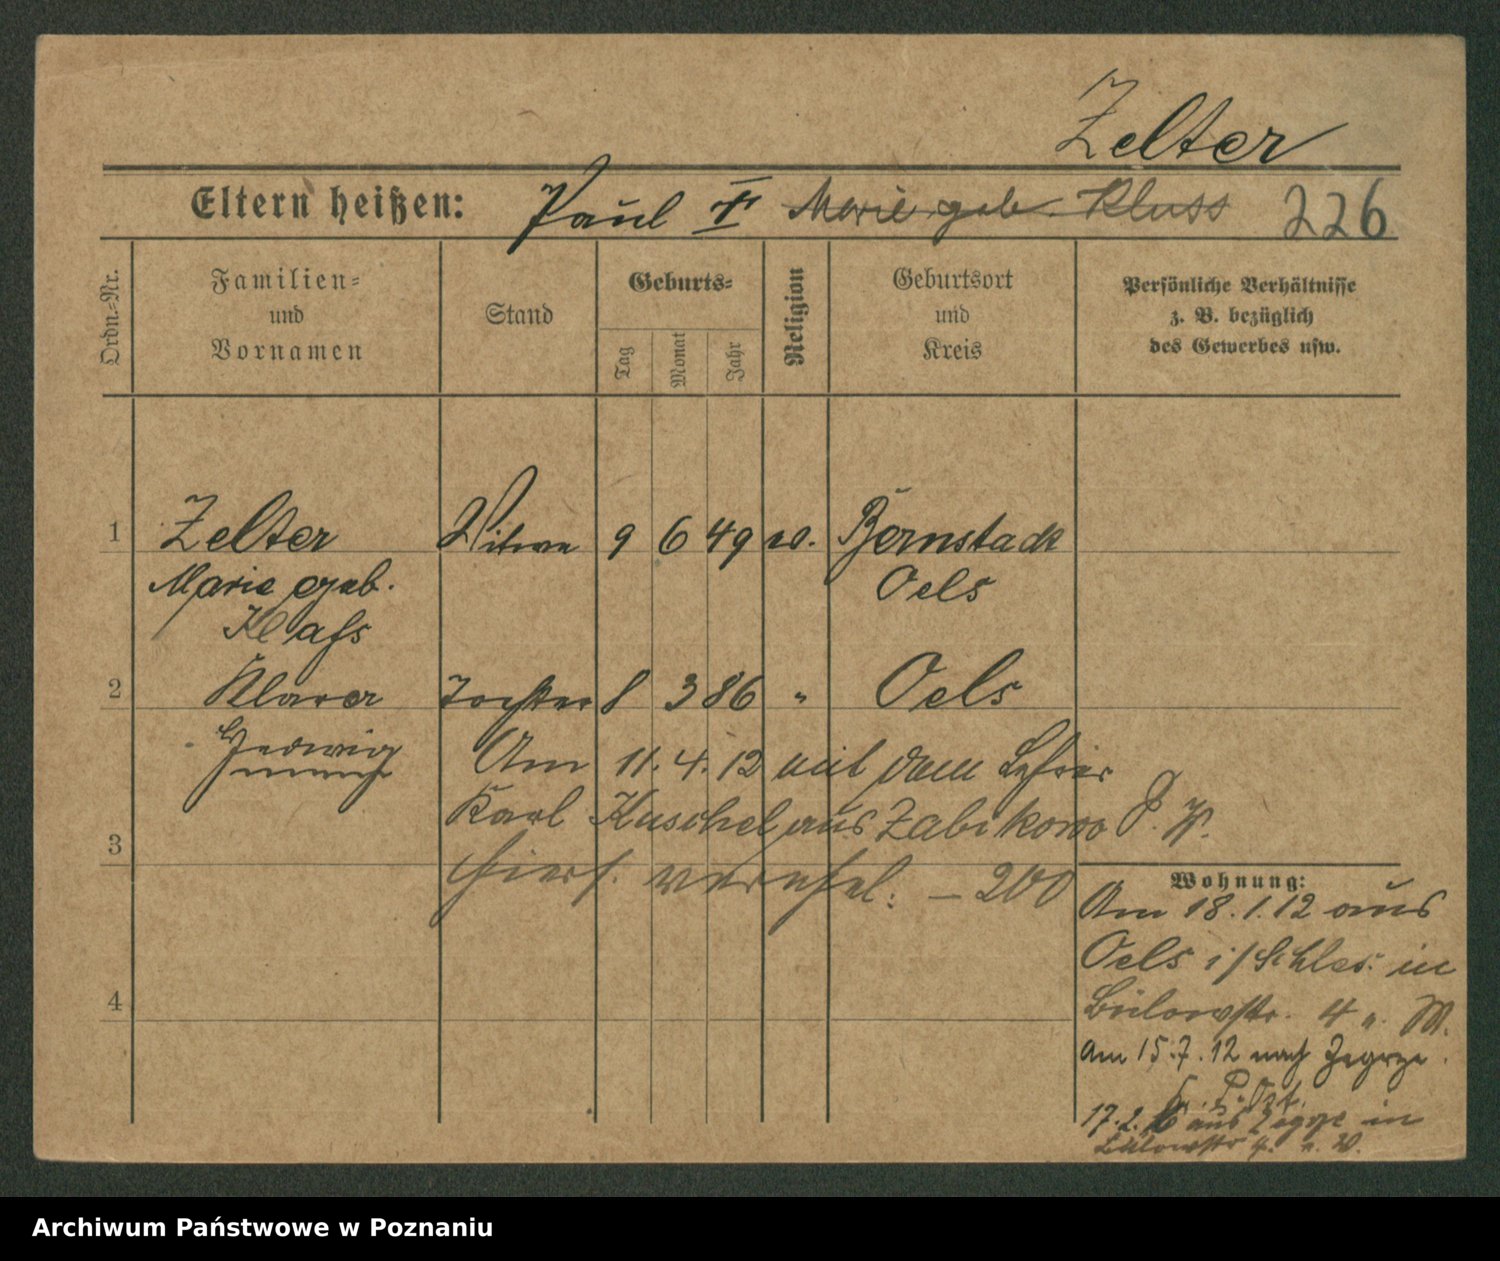 Zelter
Eltern heißen: Paul † Marie geb. Kluss 226
Ordn.-Nr.
Familien-
und
Vornamen
Stand
Geburts-
Tag
Monat
Jahr
Religion
Geburtsort
und
Kreis
Persönliche Verhältnisse
z. B. bezüglich
des Gewerbes usw.
1 Zelter Witwe 9 6 49 w. Bernstadt
Marie geb. Oels
2 Klara Tochter 8 3 86 " Oels
Hedwig
Am 11.4.12 mit dem Lehrer
Karl Kuschel aus Zabikowo P. W.
3
hiers. verehel. – 200
Wohnung:
Am 18.1.12 aus
Oels i/Schles. in
4
Bülowstr. 4 a. W.
Am 15.7.12 nach Zegrze.
17.2. aus Zegrze in
Bülowstr 4. a. W.
Archiwum Państwowe w Poznaniu